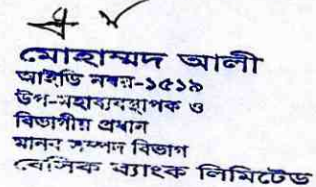 মোহাম্মদ আলী
আইডি নম্বর-১৫১৯
উপ-মহাব্যবস্থাপক ও
বিভাগীয় প্রধান
মানব সম্পদ বিভাগ
বেসিক ব্যাংক লিমিটেড